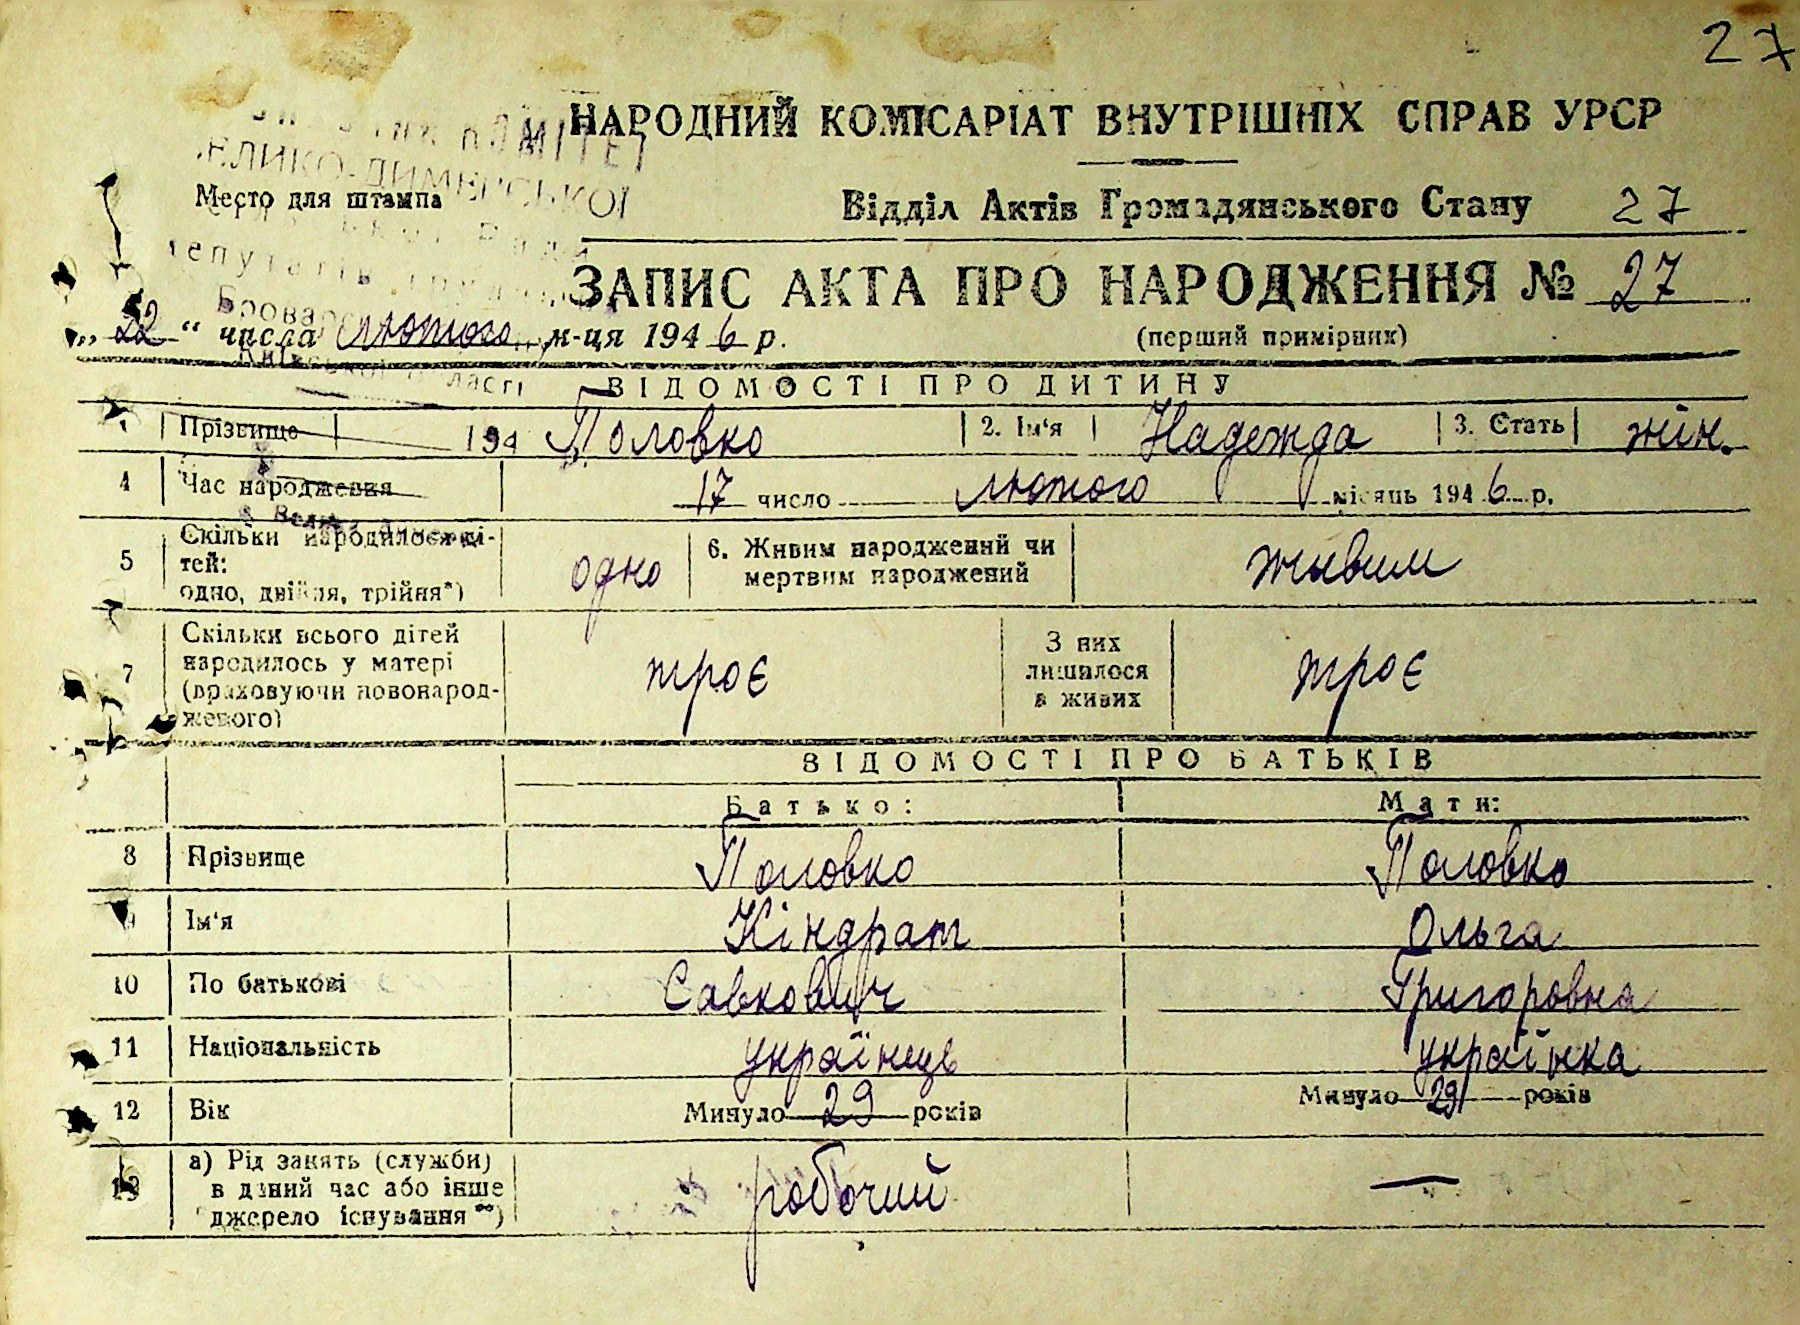 27
НАРОДНИЙ КОМІСАРІАТ ВНУТРІШНІХ СПРАВ УРСР
КОМІТЕТ
ВЕЛИКО-ДИМЕРСЬКОЇ
Место для штампа
Відділ Актів Громадянського Стану 27
ЗАПИС АКТА ПРО НАРОДЖЕННЯ № 27
„ 22 “ числа лютого м-ця 1946 р.
(перший примірник)
ВІДОМОСТІ ПРО ДИТИНУ
Прізвище 194 Половко 2. Ім‘я Надежда 3. Стать жін.
4 Час народження 17 число лютого місяць 1946 р.
5 Скільки народилося ді-
тей:
одно, двійня, трійня*) одно 6. Живим народжений чи
мертвим народжений жывим
7 Скільки всього дітей
народилось у матері
(враховуючи новонарод-
женого) троє З них
лишилося
в живих троє
ВІДОМОСТІ ПРО БАТЬКІВ
Батько: Мати:
8 Прізвище Половко Половко
9 Ім‘я Кіндрат Ольга
10 По батькові Савкович Григоровна
11 Національність українець українка
12 Вік Минуло 29 років Минуло 29 років
13 а) Рід занять (служби)
в даний час або інше
джерело існування **) робочий —